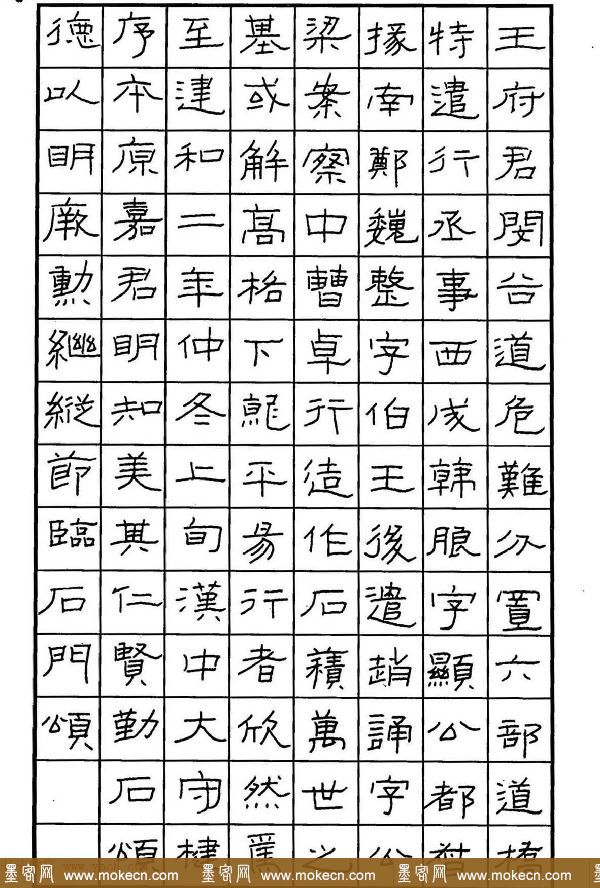 王府君閔谷道危難分置六部道橋
特遣行丞事西成韓朖字顯公都督
掾南鄭魏整字伯王後遣趙誦字公
梁案察中曹卓行造作石積萬世之
基或解高格下就平易行者欣然焉
至建和二年仲冬上旬漢中大守楗
序本原嘉君明知美其仁賢勤石頌
德以明厥勳繼縱節臨石門頌
墨客网 www.mokecn.com 墨客网 www.mokecn.com 墨客网 www.mokecn.com 墨客网 www.mokecn.com